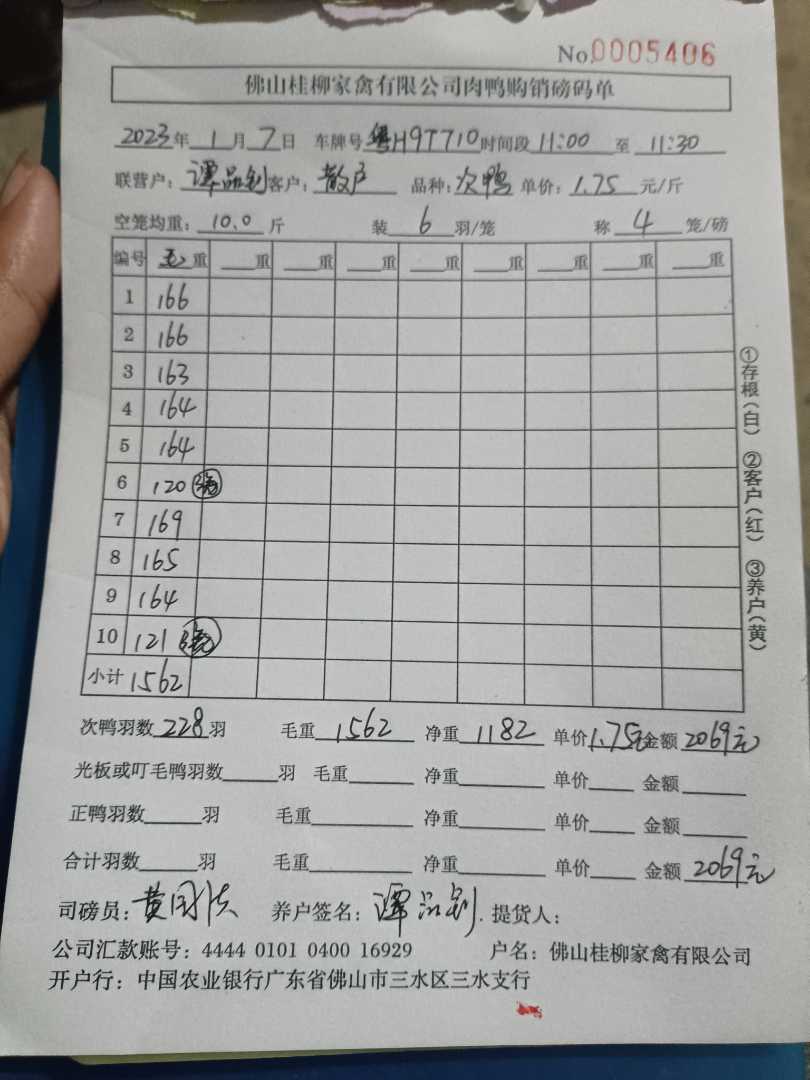 No.0005406
佛山桂柳家禽有限公司肉鸭购销磅码单
2023年 1月 7日 车牌号 粤H9T710 时间段 11:00 至 11:30
联营户: 谭品钊 客户: 散户 品种: 次鸭 单价: 1.75 元/斤
空笼均重: 10.0 斤 装 6 羽/笼 称 4 笼/磅
编号 毛重 重 重 重 重 重 重 重 重
1 166
2 166
3 163
4 164
5 164
6 120
7 169
8 165
9 164
10 121
小计 1562
①存根(白) ②客户(红) ③养户(黄)
次鸭羽数 228 羽 毛重 1562 净重 1182 单价 1.75元 金额 2069元
光板或叮毛鸭羽数 羽 毛重 净重 单价 金额
正鸭羽数 羽 毛重 净重 单价 金额
合计羽数 羽 毛重 净重 单价 金额 2069元
司磅员: 黄国 养户签名: 谭品钊. 提货人:
公司汇款账号: 4444 0101 0400 16929 户名: 佛山桂柳家禽有限公司
开户行: 中国农业银行广东省佛山市三水区三水支行